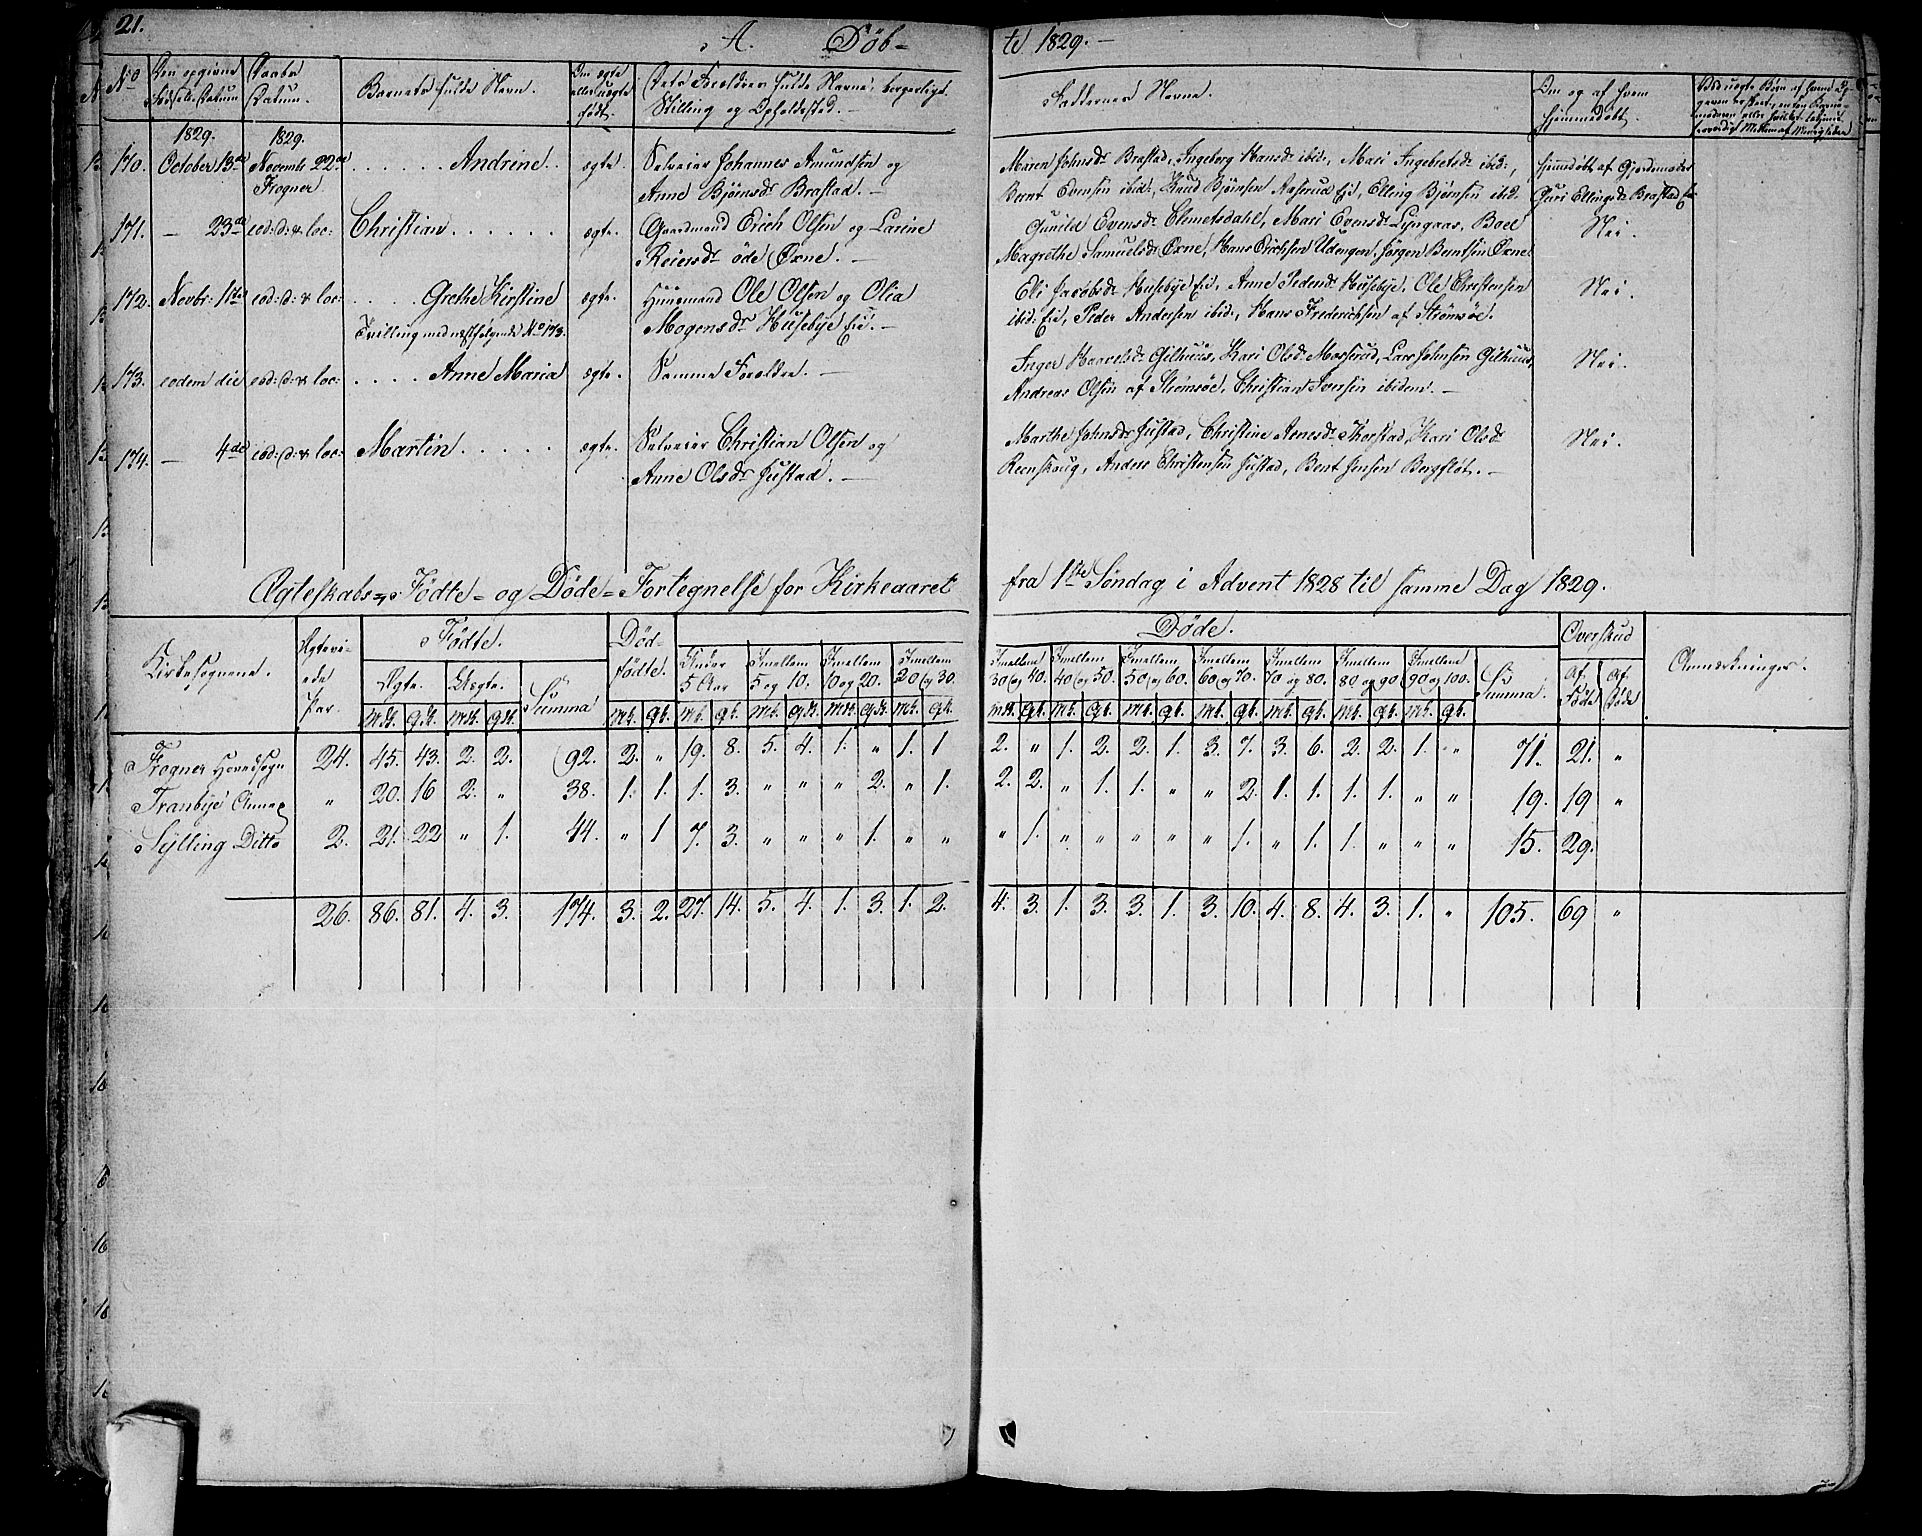 21.
A. Døb-
te 1829.-
No
Den opgivne Fødsels-Datum
Daabs Datum.
Barnets fulde Navn.
Om ægte eller uægte født.
Dets Forældres fulde Navne, borgerlige Stilling og Opholdssted.
Faddernes Navne.
Om og af hvem hjemmedøbt.
1829. 1829.
170. October 13de Novembr 22de Frogner. . . . . . . Andrine ægte. Selveier Johannes Amundsen og
Anne Bjørnsdr Brastad. -
Maren Johnsdr Brastad, Ingeborg Hansdr ibid:, Mari Ingebretsdr ibid:,
Bernt Evensen ibid:, Knud Bjørnsen Aaserud Eie, Elling Bjørnsen ibid.
Hjemmedøbt af Gjordemoder
Guri Ellingsdr Brastad Eie
171. - 23de eod: d: & loc: Christian . . . . . . ægte. Gaardmand Erich Olsen og Larine
Reiersdr øde Øxne. -
Gunild Evensdr Elmetsdahl, Mari Evensdr Lyngaas, Boel
Magrethe Samuelsdr Øxne, Hans Erichsen Udengen, Jørgen Berntsen Øxne
Nei.
172. Novbr: 1ste eod: d: & loc: . . . . Grethe Kirstine ægte. Huusmand Ole Olsen og Olia
Tvilling med næstfølgende No 173. Mogensdr Husebye Eie. -
Elli Jacobsdr Husebye Eie, Anne Pedersdr Husebye, Ole Christensen
ibid: Eie, Peder Andersen ibid:, Hans Frederichsen af Strømsøe.
Nei.
173. eodem die eod: d: & loc: . . . . Anne Maria ægte. Samme Forældre. -
Inger Haavelsdr Gilhuus, Kari Olsdr Morserud, Lars Johnsen Gilhuus,
Andreas Olsen af Strømsøe, Christian Iversen ibidem. -
Nei.
174. - 4de eod: d: & loc: Martin . . . . . ægte. Selveier Christian Olsen og
Anne Olsdr Justad. -
Marthe Johnsdr Justad, Christine Arnesdr Thorstad, Kari Olsdr
Reenskoug, Anders Christensen Justad, Bent Jensen Bergfløt. -
Nei.
Ægteskabs-, Fødte- og Døde-Fortegnelse for Kirkeaaret
fra 1ste Søndag i Advent 1828 til samme Dag 1829.
Kirkesognene. Ægteviede Par. Fødte. Dødfødte. Døde. Overskud Anmærkninger.
Ægte. Uægte. Summa Under 5 Aar Imellem 5 og 10. Imellem 10 og 20. Imellem 20 og 30.
Imellem 30 og 40. Imellem 40 og 50. Imellem 50 og 60. Imellem 60 og 70. Imellem 70 og 80. Imellem 80 og 90 Imellem 90 og 100. Summa. Af Føde Af Døde
Mk. Qk. Mk. Qk. Mk. Qk. Mk. Qk. Mk. Qk. Mk. Qk. Mk. Qk.
Mk. Qk. Mk. Qk. Mk. Qk. Mk. Qk. Mk. Qk. Mk. Qk. Mk. Qk.
Frogner Hovedsogn 24. 45. 43. 2. 2. 92. 2. " 19. 8. 5. 4. 1. " 1. 1
2. " 1. 2. 2. 1. 3. 7. 3. 6. 2. 2. 1. " 71. 21. "
Tranbye Annex " 20. 16 2. " 38. 1. 1. 1. 3. " " " 2. " 1.
2. 2. " 1. 1. " " 2. 1. 1. 1. 1. " " 19. 19 "
Sylling Ditto 2. 21. 22 " 1. 44. " 1 7. 3. " " " 1. " "
" 1. " " " " " 1. " 1. 1. " " " 15. 29.
26. 86. 81. 4. 3. 174. 3. 2. 27. 14. 5. 4. 1. 3. 1. 2.
4. 3. 1. 3. 3. 1. 3. 10. 4. 8. 4. 3. 1. " 105. 69 "